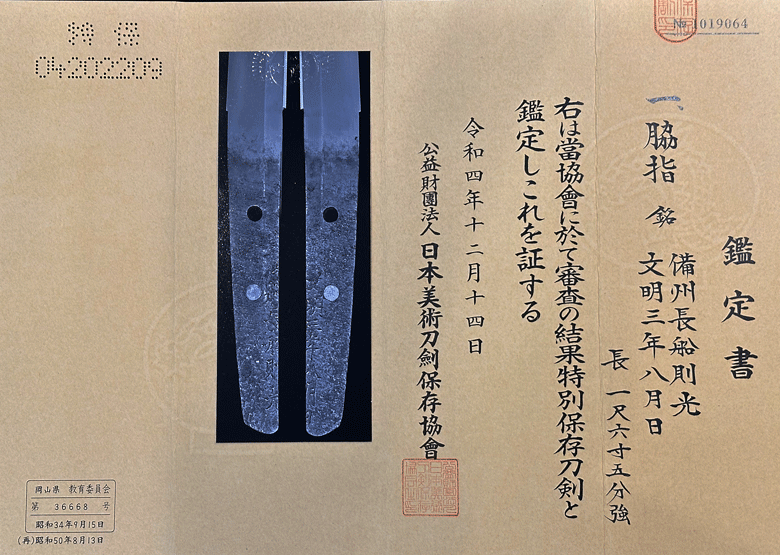 № 1019064
鑑定書
一、脇指 銘 備州長船則光
文明三年八月日
長 一尺六寸五分強
右は當協會に於て審査の結果特別保存刀剣と
鑑定しこれを証する
令和四年十二月十四日
公益財團法人 日本美術刀劍保存協會
特保
04202209
岡山県 教育委員会
第 36668 号
昭和34年9月15日
(再)昭和50年8月13日